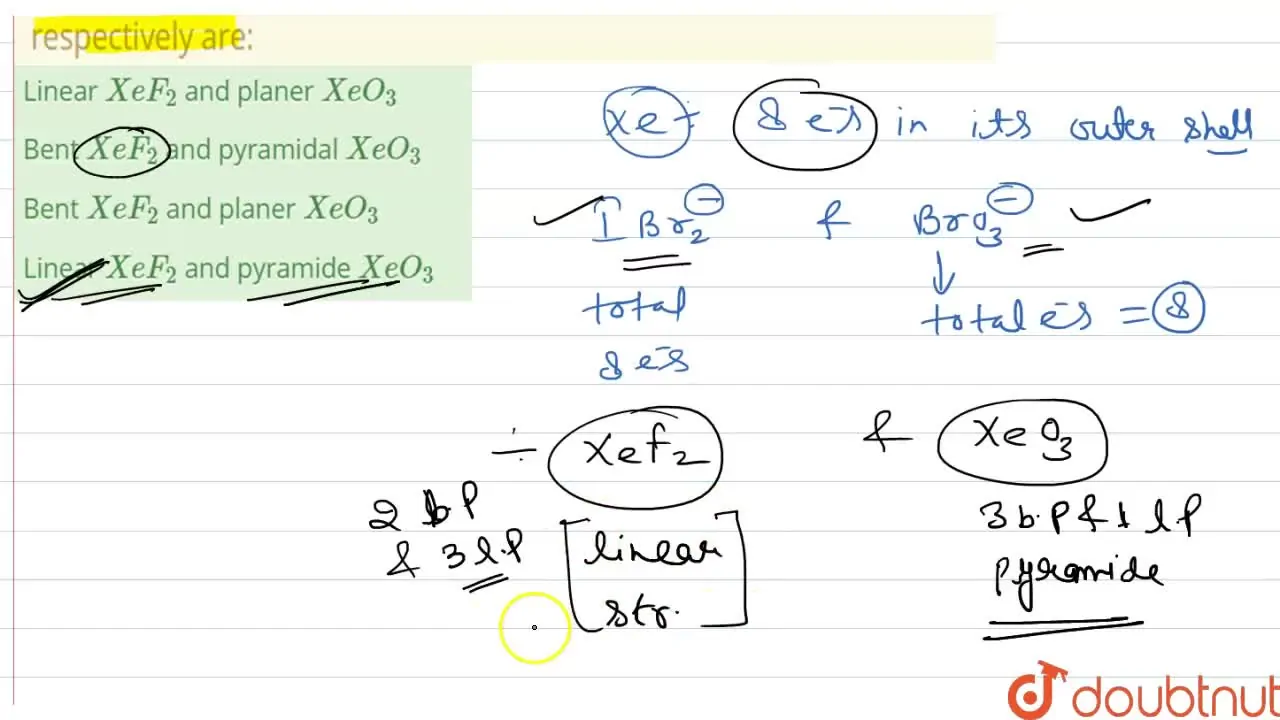 respectively are:
Linear XeF₂ and planer XeO₃
Bent XeF₂ and pyramidal XeO₃
Bent XeF₂ and planer XeO₃
Linear XeF₂ and pyramide XeO₃
Xe ÷ 8 es in its outer shell
IBr₂⁻ & BrO₃⁻
total total es = 8
8 es
÷ Xef₂ & XeO₃
2 b.P 3 b.P & 1 l.P
& 3 l.P [linear pyramide
str.]
doubtnut